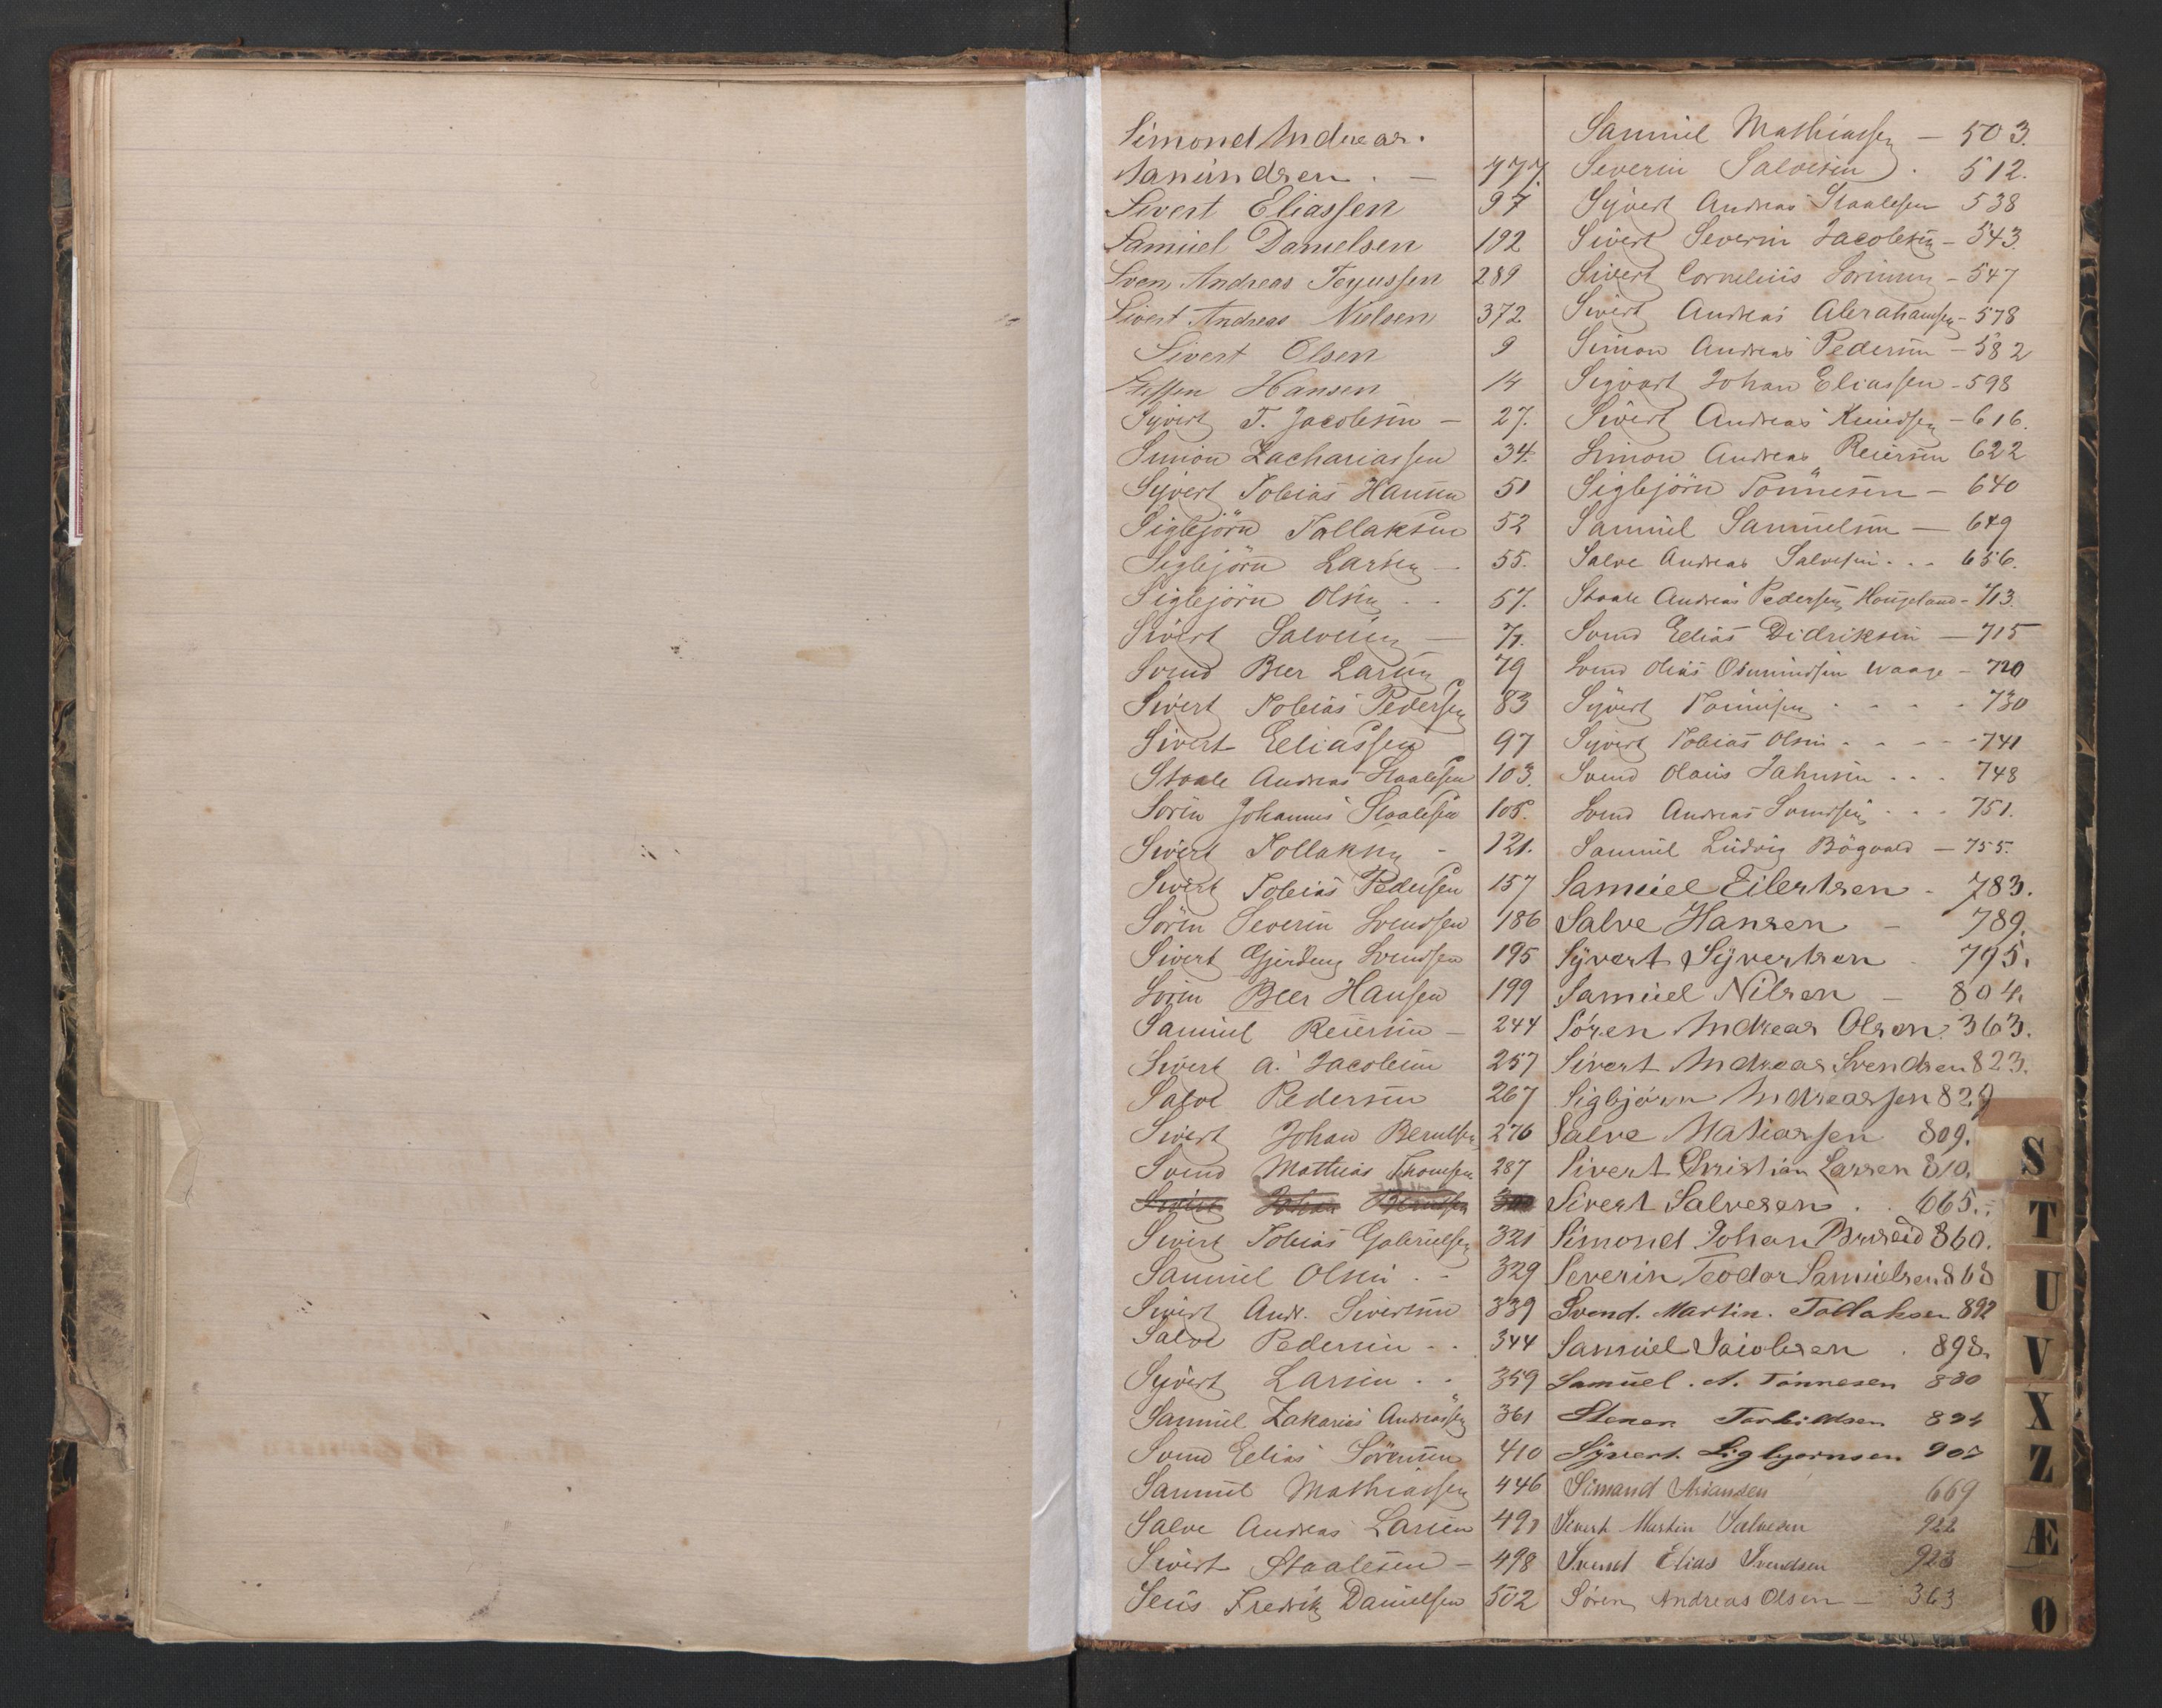 Simond Andreas.
Aanundsen . — 477.
Sivert Eliassen 97
Samuel Danielsen 192
Sven Andreas Tegussen 289
Sivert Andreas Nielsen 372
Sivert Olsen 9
Steffen Hansen 14
Syvert T. Jacobsen — 27.
Simon Zachariassen 34.
Syvert Tobias Hansen 51
Sigbjörn Tollaksen 52
Sigbjörn Larsen — 55.
Sigbjörn Olsen - - 57.
Sivert Salvesen — 71.
Svend Beer Larsen 79
Sivert Tobias Pedersen 83
Sivert Eeliassen 97
Staale Andreas Staalesen 103.
Sören Johannes Staalesen 108.
Sivert Tollaksen - 121.
Sivert Tobias Pedersen 157
Sören Severin Svendsen 186
Sivert Gjerding Svendsen 195
Sören Beer Hansen 199
Samuel Reiersen — 244
Sivert A. Jacobsen 257
Salve Pedersen 267
Sivert Johan Berntsen 276
Svend Mathias Thomsen 287
Sivert Johan Berntsen
Sivert Tobias Gabrielsen 321
Samuel Olsen . - 329
Sivert Andr. Sivertsen 339
Salve Pedersen . . 344
Syvert Larsen . . 359
Samuel Zakarias Andreassen 361
Svend Eelias Sörensen 410
Samuel Mathiassen 446
Salve Andreas Larsen 491
Sivert Staalesen — 498
Seus Fredrik Danielsen 502
Samuel Mathiassen — 503.
Severin Salvesen . 512.
Syvert Andreas Staalesen 538
Sivert Severin Jacobsen — 543.
Sivert Cornelius Sörensen — 547
Sivert Andreas Abrahamsen — 578
Simon Andreas Pedersen — 582
Sigvart Johan Eliassen — 598
Sivert Andreas Knudsen — 616.
Simon Andreas Reiersen 622
Sigbjörn Tönnesen — 640
Samuel Samuelsen — 649
Salve Andreas Salvesen . . . 656.
Staale Andreas Pedersen Hougeland — 713.
Svend Eelias Didriksen — 715
Svend Olias Osmundsen Waage — 720
Syvert Tönnesen - - - - 730
Syvert Tobias Olsen - - - - 741
Svend Olaus Jahnsen . . . 748
Svend Andreas Svendsen - - - 751.
Samuel Ludvig Bögvald — 755.
Samuel Eilertsen - 783.
Salve Hansen - 789.
Syvert Syvertsen . 795.
Samuel Nilsen — 804.
Søren Andreas Olsen. 363.
Sivert Andreas Svendsen 823.
Sigbjörn Andreassen 829
Salve Matiassen 809.
Sivert Christian Larsen 810.
Sivert Salvesen . . 665.
Simond Johan Briseid 860.
Severin Teodor Samuelsen 868
Svend. Martin. Tollaksen 892
Samuel Jacobsen . 898.
Samuel. A. Tønnesen 880
Stener Torkildsen 894
Syvert. Sigbjørnsen 907
Simand Arianden 669
Sivert Martin Salvesen 922
Svend Elias Svendsen 923
Søren Andreas Olsen — 363
S
T
U
V
X
Z
Æ
Ø